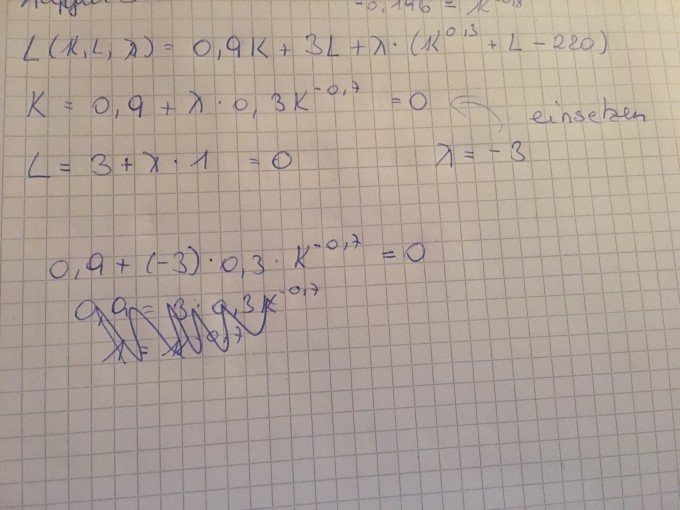 -0,146 = K^-0,8
L(K,L,λ) = 0,9K + 3L + λ · (K^0,3 + L - 220)
K = 0,9 + λ · 0,3K^-0,7 = 0
einsetzen
L = 3 + λ · 1 = 0 λ = -3
0,9 + (-3) · 0,3 · K^-0,7 = 0